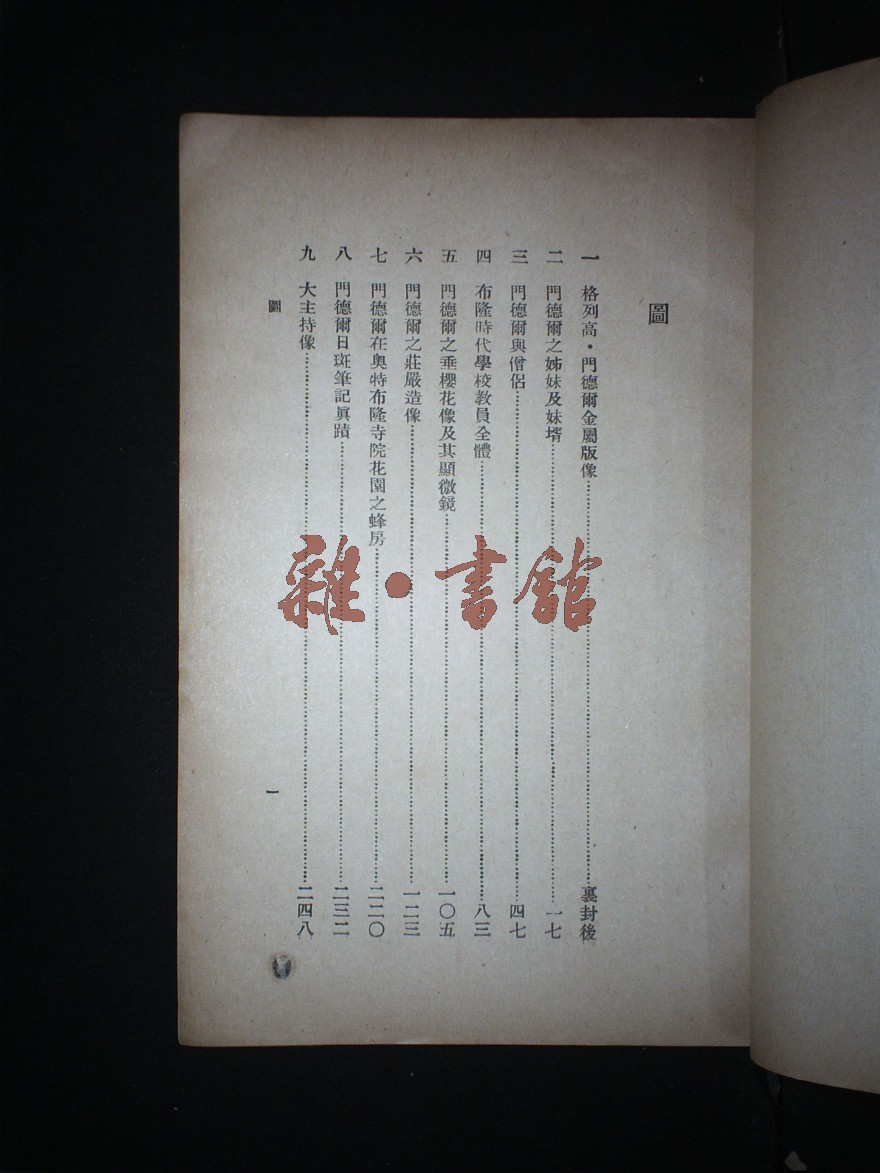 圖
一 格列高・門德爾金屬版像……裏封後
二 門德爾之姊妹及妹壻……一七
三 門德爾與僧侶……四七
四 布隆時代學校教員全體……八三
五 門德爾之垂櫻花像及其顯微鏡……一〇五
六 門德爾之莊嚴造像……一二三
七 門德爾在奧特布隆寺院花園之蜂房……二二〇
八 門德爾日斑筆記眞蹟……二三二
九 大主持像……二四八
圖 一
雜・書館